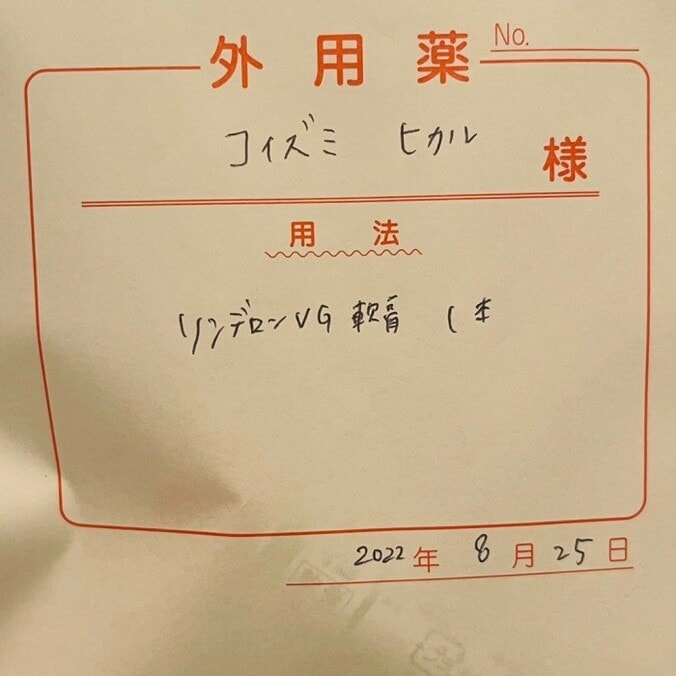 外用薬 No.
コイズミ ヒカル 様
用法
リンデロンVG 軟膏 1本
2022年 8月 25日